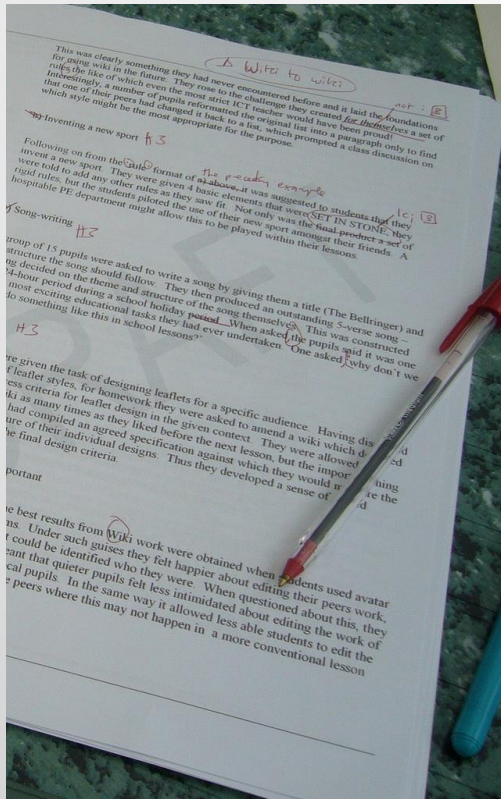 Δ Wiki to wiki
This was clearly something they had never encountered before and it laid the foundations
for using wiki in the future. They rose to the challenge they created for themselves a set of
rules the like of which even the most strict ICT teacher would have been proud!
Interestingly, a number of pupils reformatted the original list into a paragraph only to find
that one of their peers had changed it back to a list, which prompted a class discussion on
which style might be the most appropriate for the purpose.
not:
Inventing a new sport H3
the preceding example
Following on from the rule format of a) above, it was suggested to students that they
invent a new sport. They were given 4 basic elements that were SET IN STONE, they
lc;
were told to add any other rules as they saw fit. Not only was the final product a set of
rigid rules, but the students piloted the use of their new sport amongst their friends. A
hospitable PE department might allow this to be played within their lessons.
Song-writing
H3
group of 15 pupils were asked to write a song by giving them a title (The Bellringer) and
structure the song should follow. They then produced an outstanding 5-verse song –
ng decided on the theme and structure of the song themselves. This was constructed
24-hour period during a school holiday period. When asked, the pupils said it was one
most exciting educational tasks they had ever undertaken. One asked, why don't we
do something like this in school lessons?"
H3
ere given the task of designing leaflets for a specific audience. Having dis
of leaflet styles, for homework they were asked to amend a wiki which d
ess criteria for leaflet design in the given context. They were allowed
iki as many times as they liked before the next lesson, but the impor hing
had compiled an agreed specification against which they would m re the
ure of their individual designs. Thus they developed a sense of
he final design criteria.
portant
e best results from Wiki work were obtained when students used avatar
ms. Under such guises they felt happier about editing their peers work,
t could be identified who they were. When questioned about this, they
eant that quieter pupils felt less intimidated about editing the work of
cal pupils. In the same way it allowed less able students to edit the
e peers where this may not happen in a more conventional lesson